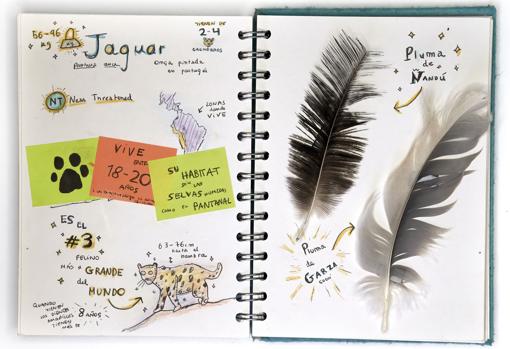 56-96
kg
Jaguar
Panthera onca
TIENEN DE
2-4
CACHORROS
Onça pintada
en portugués
NT Near Threatened
ZONAS
donde
VIVE
VIVE
ENTRE
18-20
AÑOS
SU HABITAT
SON LAS
SELVAS HÚMEDAS
COMO EL PANTANAL
ES EL
#3
FELINO
MÁS GRANDE
del
MUNDO
63-76cm
hasta el
hombro
CUANDO
TIENEN
LOS DIENTES
AMARILLOS
TIENEN
MÁS DE
8 AÑOS
Pluma
de
ÑANDÚ
Pluma
de
GARZA